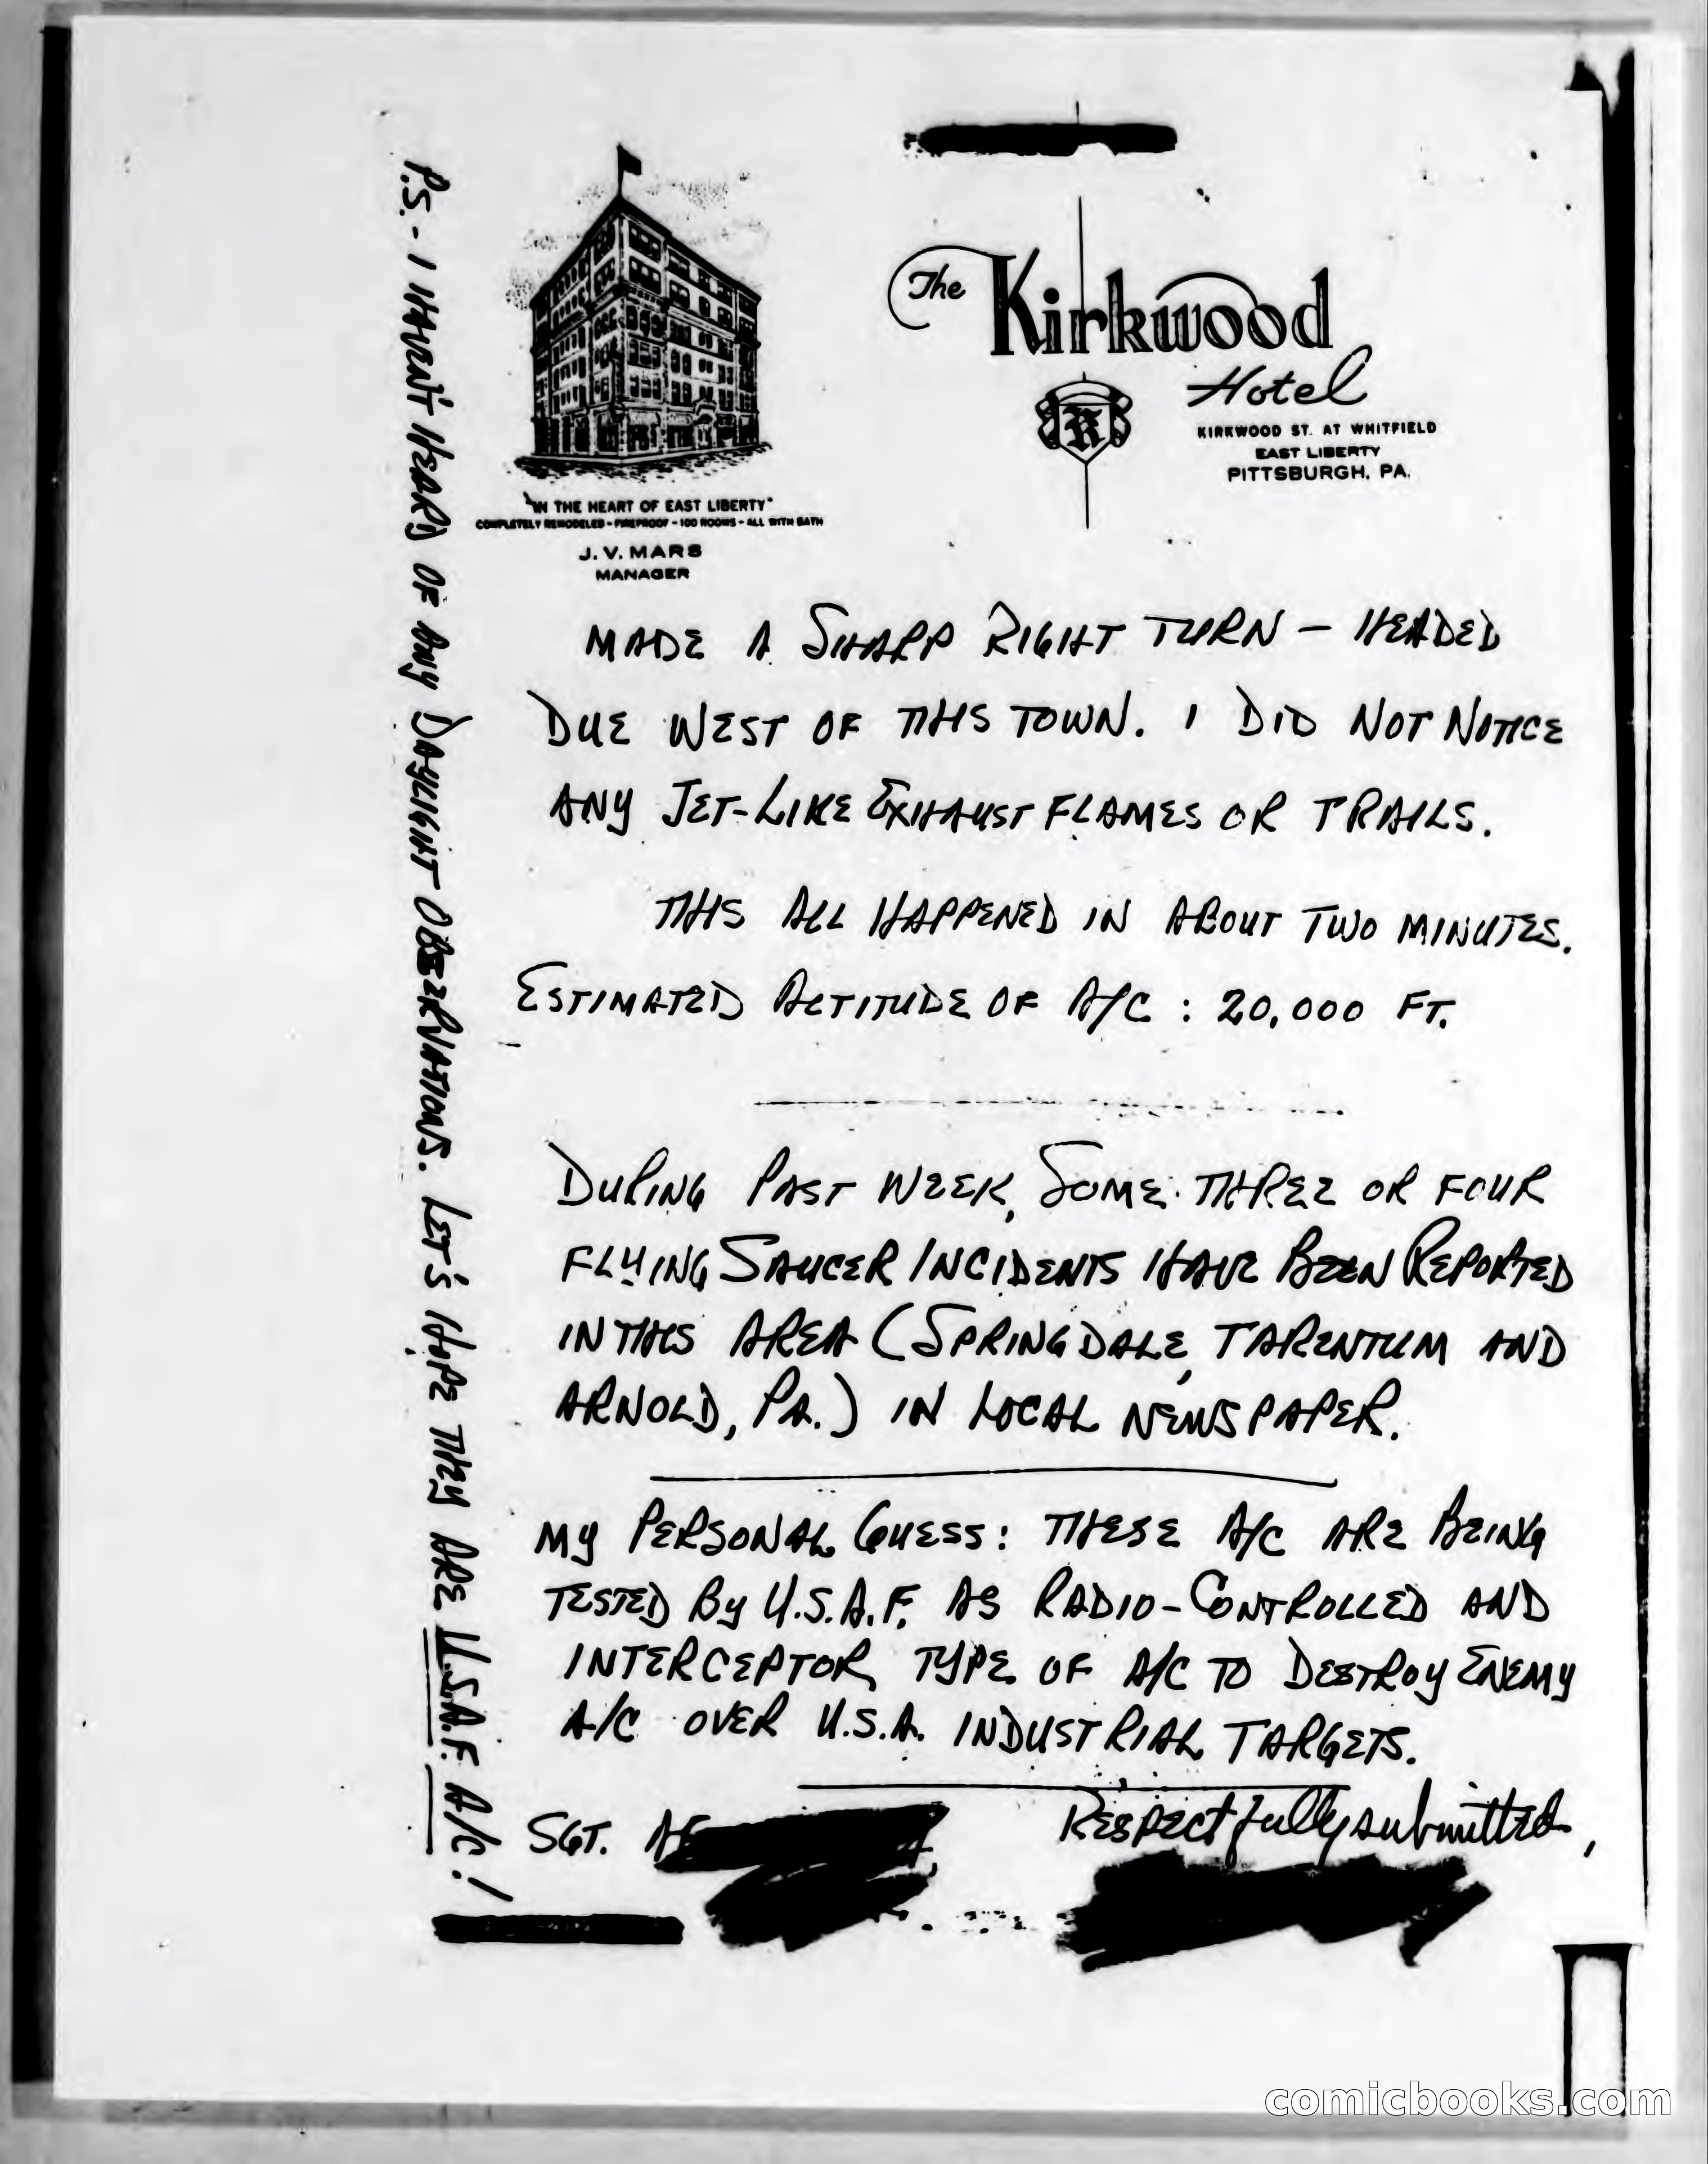 The Kirkwood
Hotel
KIRKWOOD ST. AT WHITFIELD
EAST LIBERTY
PITTSBURGH, PA.
"IN THE HEART OF EAST LIBERTY"
COMPLETELY REMODELED - FIREPROOF - 100 ROOMS - ALL WITH BATH
J. V. MARS
MANAGER
MADE A SHARP RIGHT TURN — HEADED
DUE WEST OF THIS TOWN. I DID NOT NOTICE
ANY JET-LIKE EXHAUST FLAMES OR TRAILS.
THIS ALL HAPPENED IN ABOUT TWO MINUTES.
ESTIMATED ALTITUDE OF A/C : 20,000 FT.
DURING PAST WEEK, SOME THREE OR FOUR
FLYING SAUCER INCIDENTS HAVE BEEN REPORTED
IN THIS AREA (SPRINGDALE, TARENTUM AND
ARNOLD, PA.) IN LOCAL NEWSPAPER.
MY PERSONAL GUESS: THESE A/C ARE BEING
TESTED BY U.S.A.F. AS RADIO-CONTROLLED AND
INTERCEPTOR TYPE OF A/C TO DESTROY ENEMY
A/C OVER U.S.A. INDUSTRIAL TARGETS.
RESPECTfully submitted,
SGT.
P.S. - I HAVEN'T HEARD OF ANY DAYLIGHT OBSERVATIONS. LET'S HOPE THEY ARE U.S.A.F. A/C!
comicbooks.com